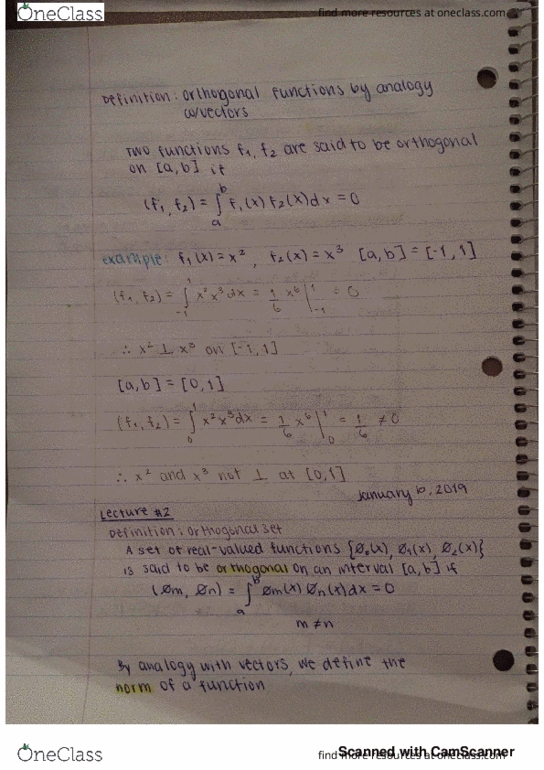 OneClass
find more resources at oneclass.com
Definition: Orthogonal Functions by analogy
w/vectors
Two functions f₁, f₂ are said to be orthogonal
on [a,b] if
(f₁, f₂) = ∫ₐᵇ f₁(x) f₂(x) dx = 0
example: f₁(x) = x², f₂(x) = x³ [a,b] = [-1,1]
(f₁, f₂) = ∫₋₁¹ x² x³ dx = 1/6 x⁶ |₋₁¹ = 0
∴ x² ⊥ x³ on [-1,1]
[a,b] = [0,1]
(f₁, f₂) = ∫₀¹ x² x³ dx = 1/6 x⁶ |₀¹ = 1/6 ≠ 0
∴ x² and x³ not ⊥ at [0,1]
January 6, 2019
Lecture #2
Definition: Orthogonal Set
A set of real-valued functions {Ø₀(x), Ø₁(x), Ø₂(x)}
is said to be orthogonal on an interval [a,b] if
(Øm, Øn) = ∫ₐᵇ Øm(x) Øn(x) dx = 0
m ≠ n
By analogy with vectors, we define the
norm of a function
OneClass
find more resources at oneclass.com
Scanned with CamScanner